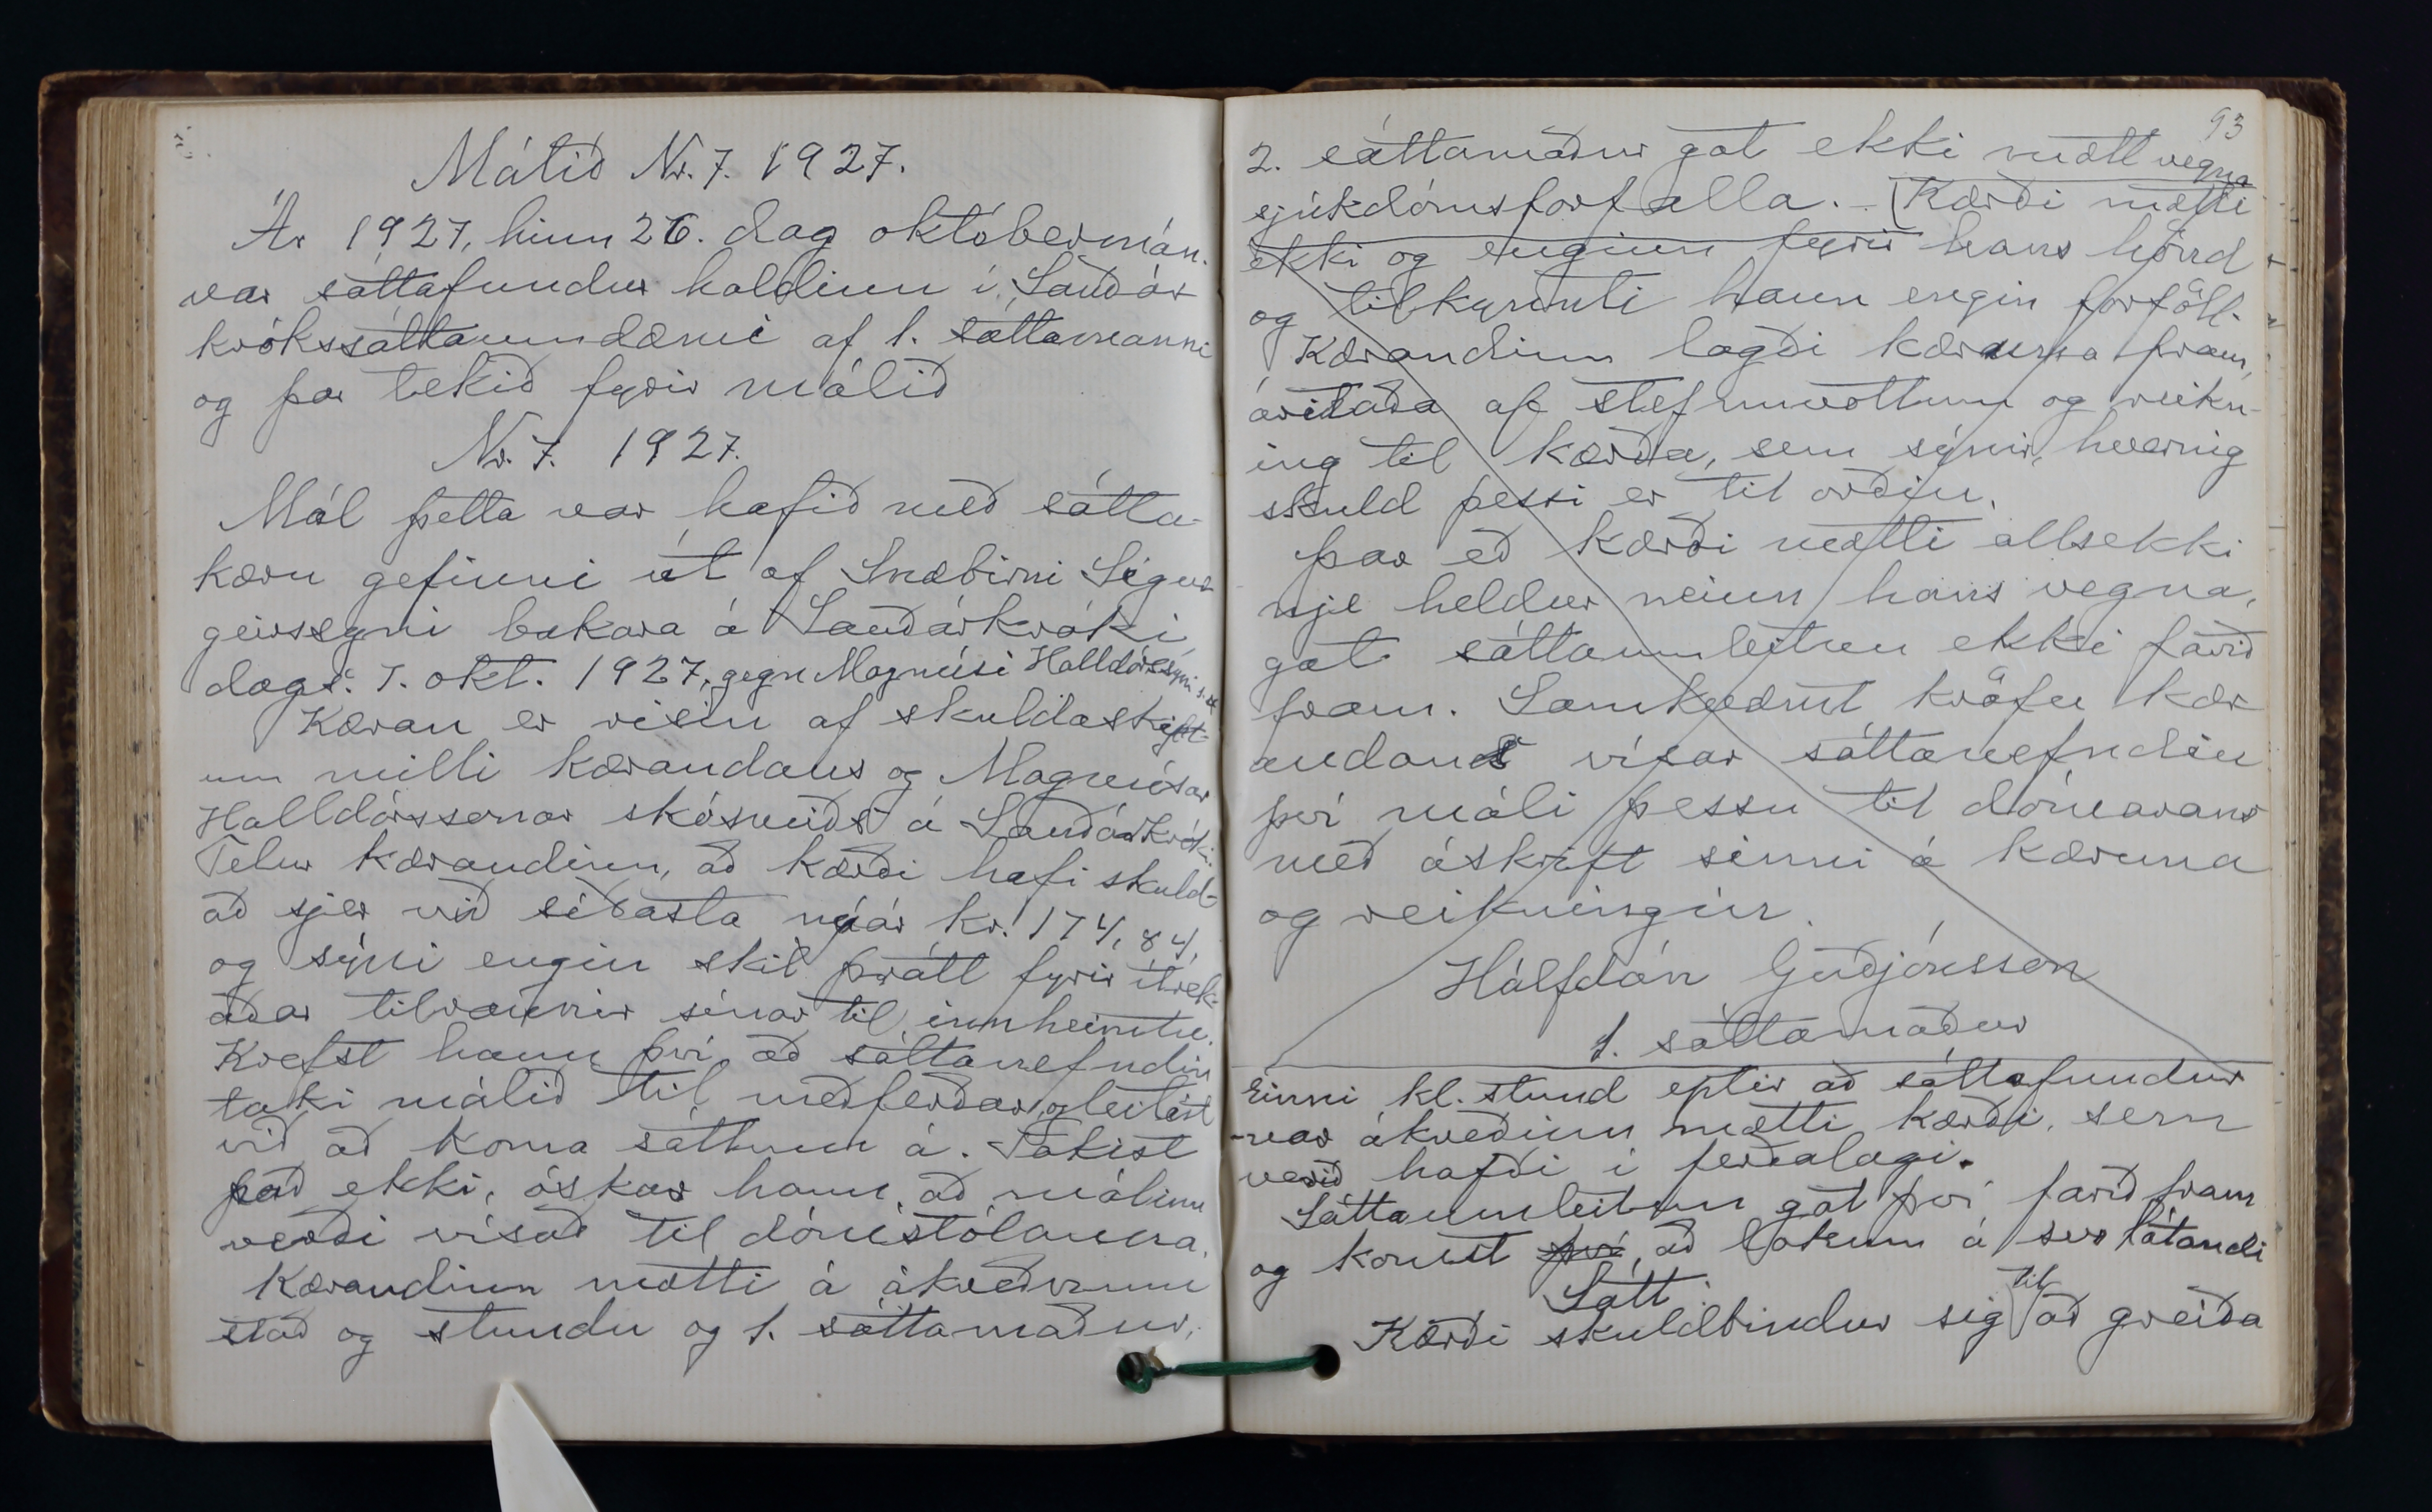 Málið Nr. 7. 1927.
Ár 1927, hinn 26. dag októbermán.
var sáttafundur haldinn í Sauðár
krókssáttaumdæmi af 1. sáttamanni
og þar tekið fyrir málið
Nr. 7. 1927.
Mál þetta var hafið með sátta-
kæru gefinni út af Snæbirni Sigur
geirssyni bakara á Sauðárkróki
dags. 7. okt. 1927, gegn Magnúsi Halldórssyni s. st.
Kæran er risin af skuldaskipt-
um milli kærandans og Magnúsar
Halldórssonar skósmiðs á Sauðárkróki.
Telur kærandinn, að kærði hafi skuld-
að sjer við síðasta nýár kr. 174,84,
og sýni engin skil þrátt fyrir ítrek-
aðar tilraunir sínar til innheimtu.
Krefst hann því, að sáttanefndin
taki málið til meðferðar og leitist
við að koma sáttum á. Takist
það ekki, óskar hann, að málinu
verði vísað til dómstólanna.
Kærandinn mætti á ákveðnum
stað og stundu og 1. sáttamaður,
93
2. sáttamaður gat ekki mætt vegna
sjúkdómsforfalla. - Kærði mætti
ekki og enginn fyrir hans hönd
og tilkynnti hann engin forföll.
Kærandinn lagði kæruna fram,
áritaða af stefnuvottum og reikn-
ing til kærða, sem sýnir, hvernig
skuld þessi er til orðin.
Þar eð kærði mætti allsekki
nje heldur neinn hans vegna,
gat sáttaumleitun ekki farið
fram. Samkvæmt kröfu kær
andans vísar sáttanefndin
því máli þessu til dómarans
með áskrift sinni á kæruna
og reikninginn.
Hálfdán Guðjónsson
1. sáttamaður
Einni kl. stund eptir að sáttafundur
var ákveðinn mætti kærði, sem
verið hafði í ferðalagi.
Sáttaumleitun gat því farið fram
og komst því, að lokum á svo látandi
Sátt.
Kærði skuldbindur sig til að greiða